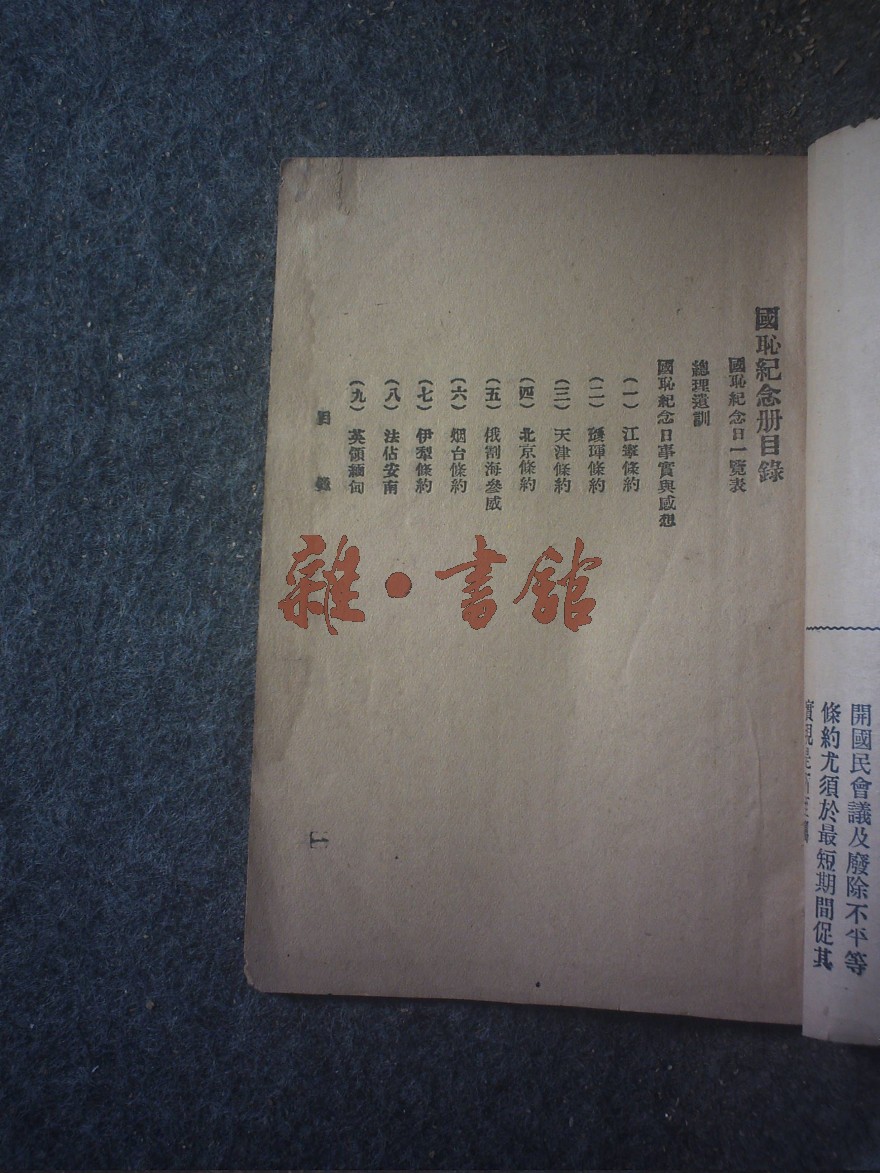 開國民會議及廢除不平等
條約尤須於最短期間促其
國恥紀念册目錄
國恥紀念日一覽表
總理遺訓
國恥紀念日事實與感想
(一) 江寧條約
(二) 璦琿條約
(三) 天津條約
(四) 北京條約
(五) 俄割海參威
(六) 烟台條約
(七) 伊犁條約
(八) 法佔安南
(九) 英領緬甸
目錄
一
雜·書館